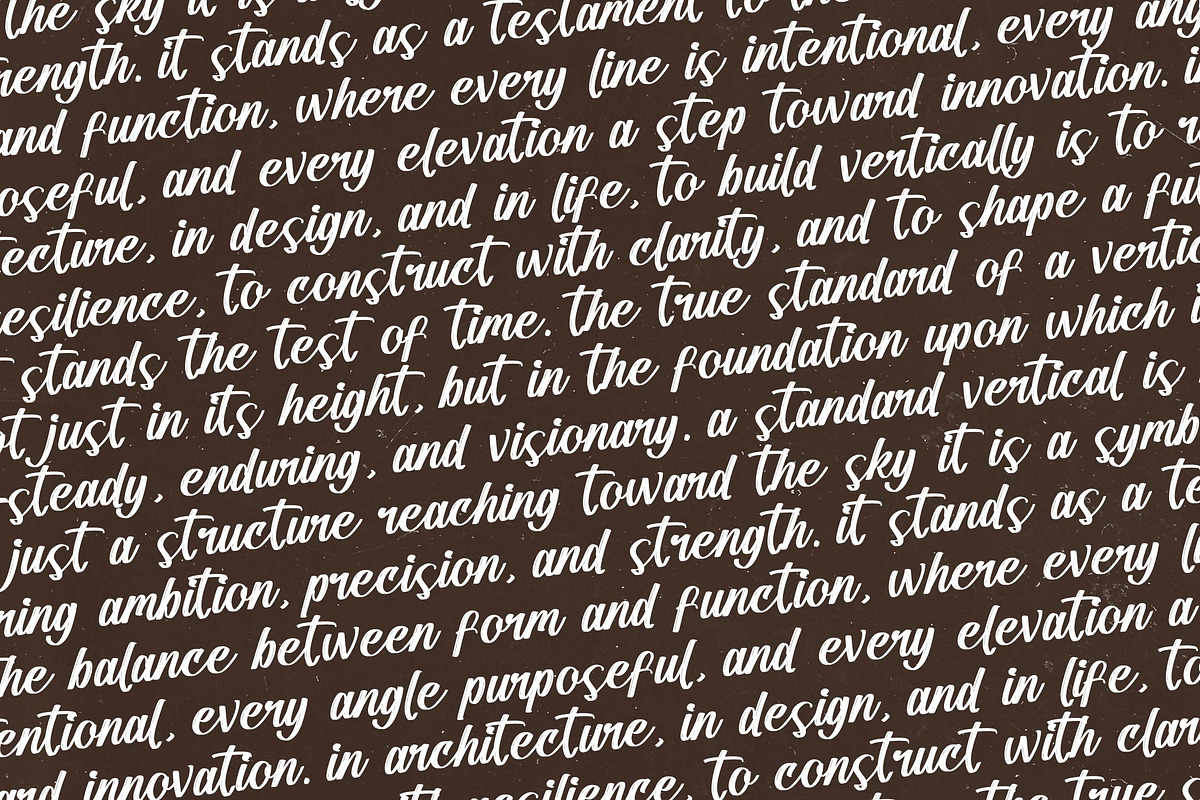 the sky it is
strength. it stands as a testament to the
and function, where every line is intentional, every angle
purposeful, and every elevation a step toward innovation. in
architecture, in design, and in life, to build vertically is to
resilience, to construct with clarity, and to shape a future
stands the test of time. the true standard of a vertical
not just in its height, but in the foundation upon which it
steady, enduring, and visionary. a standard vertical is
just a structure reaching toward the sky it is a symbol
ring ambition, precision, and strength. it stands as a te
the balance between form and function, where every li
entional, every angle purposeful, and every elevation a
ard innovation. in architecture, in design, and in life, to
th resilience, to construct with clar
the true s